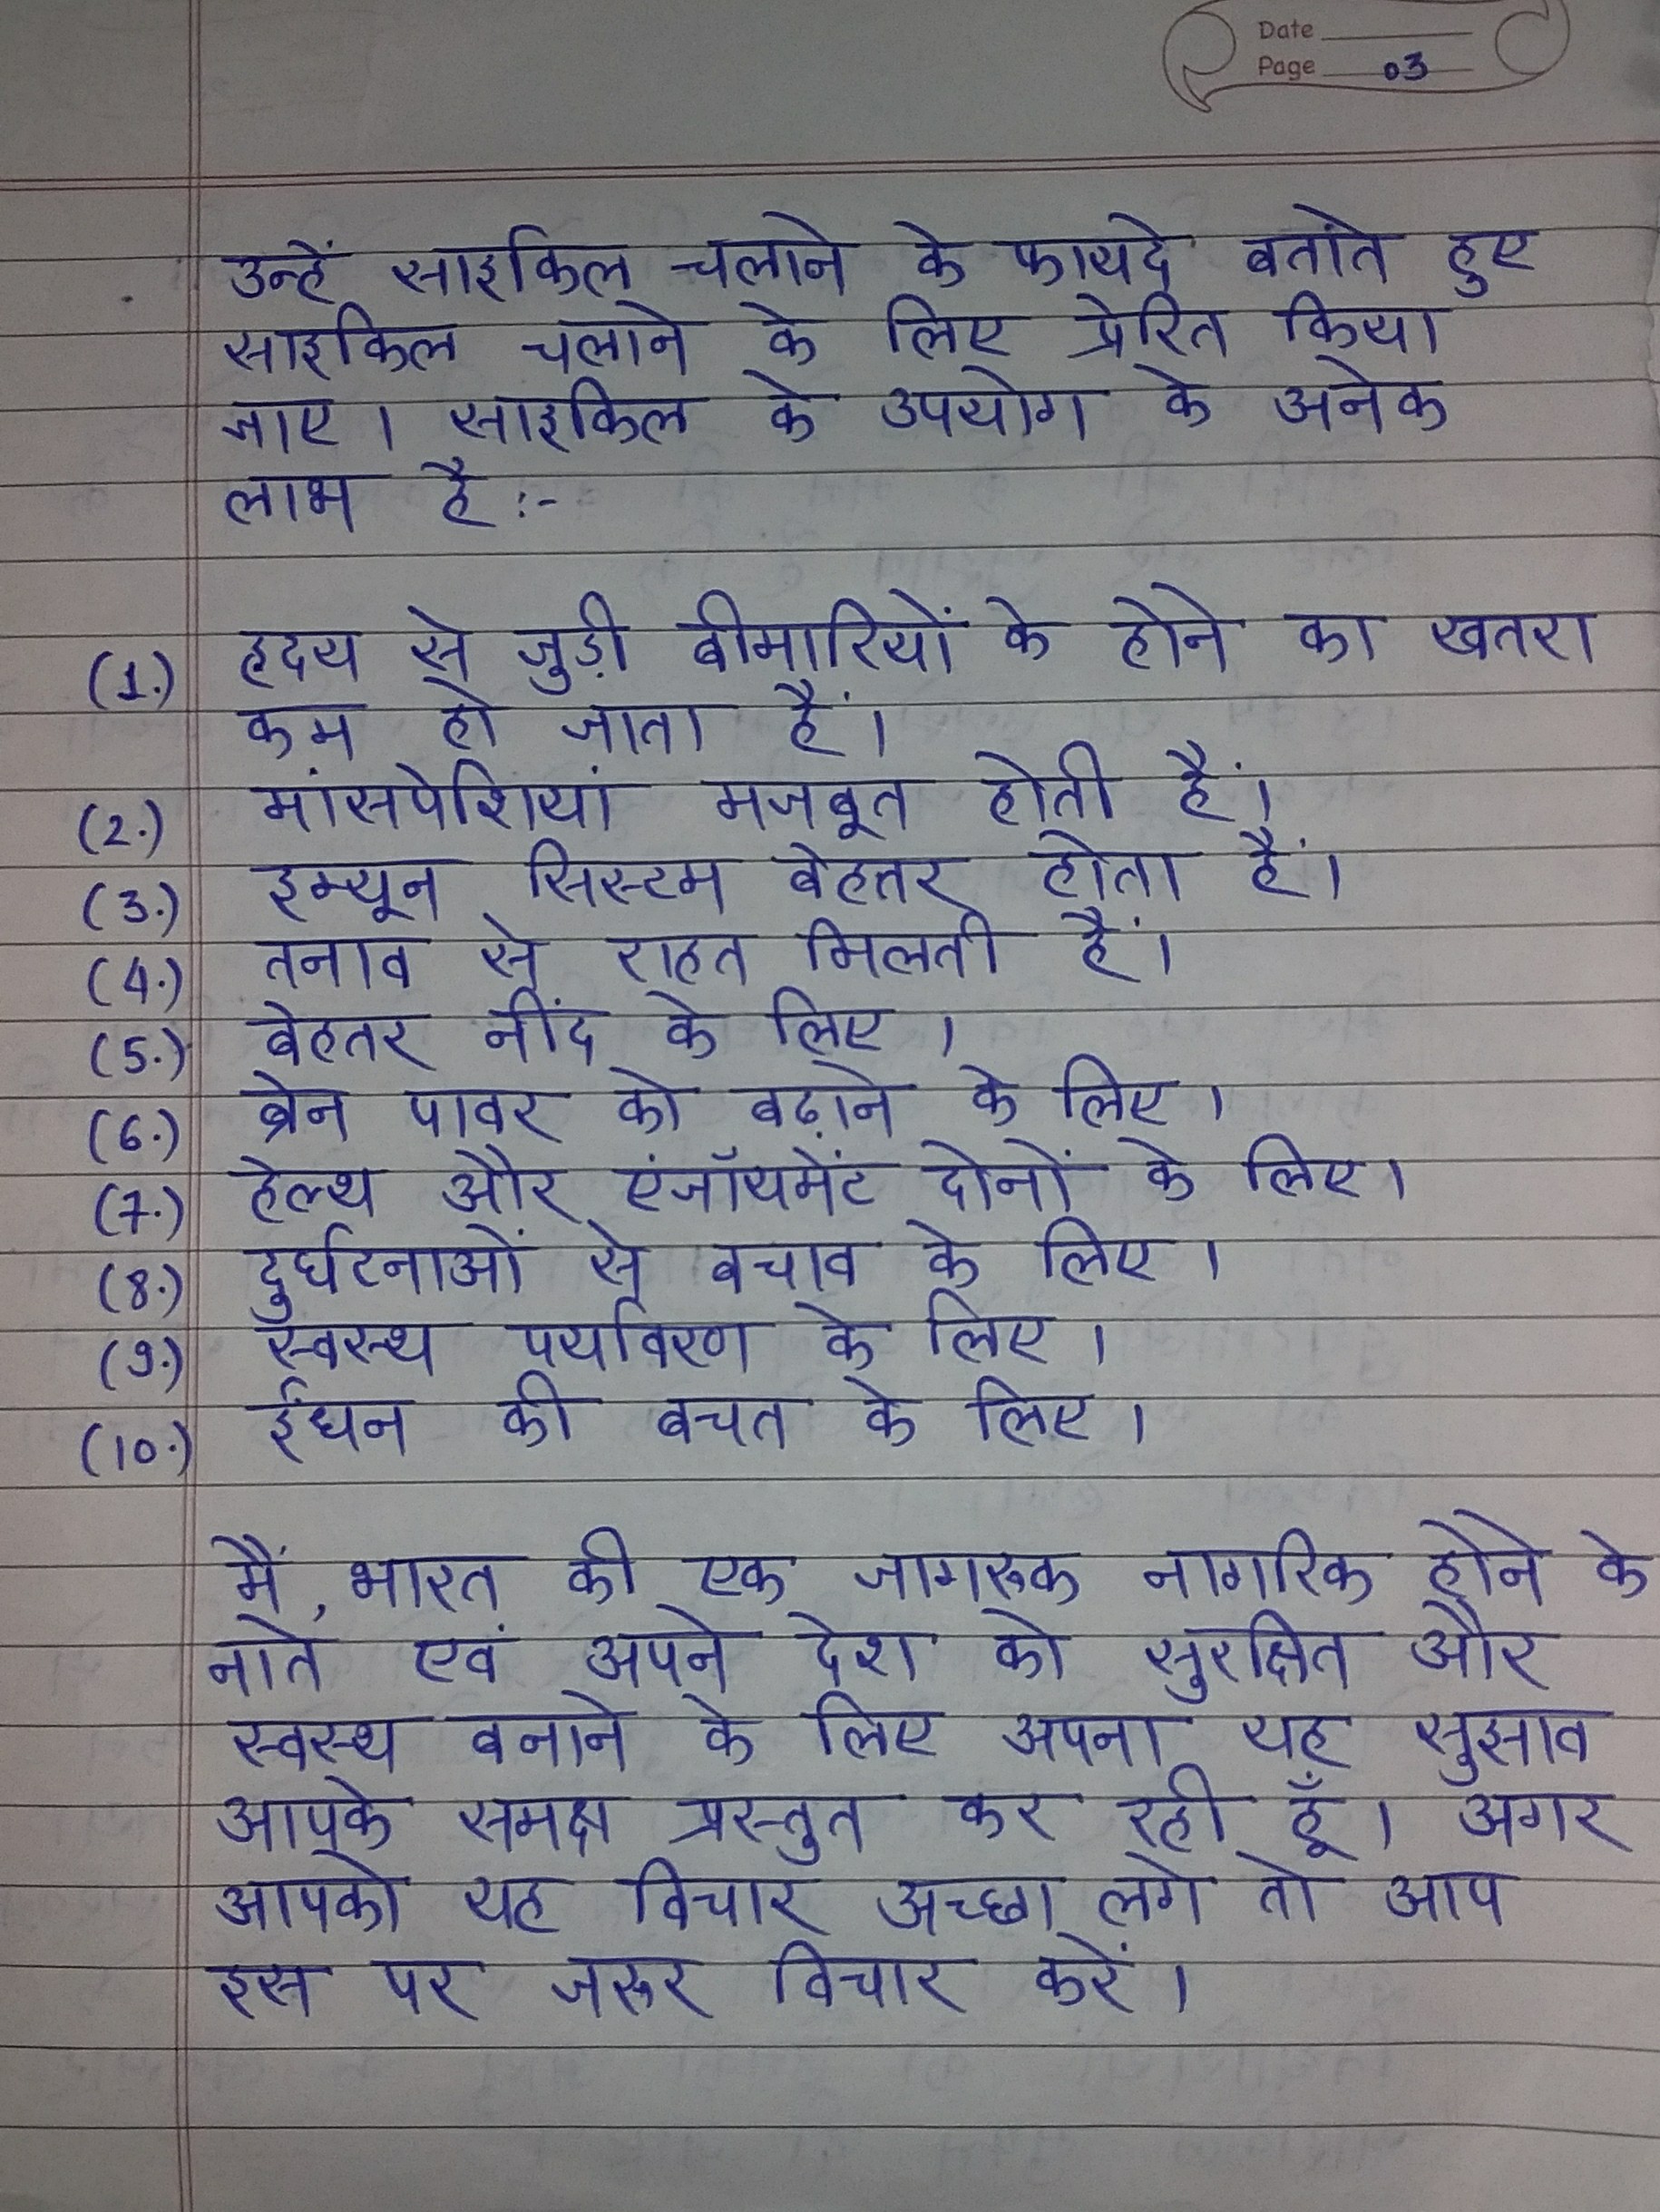 Date
Page 03
उन्हें साइकिल चलाने के फायदे बताते हुए
साइकिल चलाने के लिए प्रेरित किया
जाए। साइकिल के उपयोग के अनेक
लाभ है :-
(1.) हृदय से जुड़ी बीमारियों के होने का खतरा
कम हो जाता हैं।
(2.) मांसपेशियां मजबूत होती हैं।
(3.) इम्यून सिस्टम बेहतर होता हैं।
(4.) तनाव से राहत मिलती हैं।
(5.) बेहतर नींद के लिए।
(6.) ब्रेन पावर को बढ़ाने के लिए।
(7.) हेल्थ और एंजॉयमेंट दोनों के लिए।
(8.) दुर्घटनाओं से बचाव के लिए।
(9.) स्वस्थ पर्यावरण के लिए।
(10.) ईंधन की बचत के लिए।
मैं, भारत की एक जागरुक नागरिक होने के
नाते एवं अपने देश को सुरक्षित और
स्वस्थ बनाने के लिए अपना यह सुझाव
आपके समक्ष प्रस्तुत कर रही हूँ। अगर
आपको यह विचार अच्छा लगे तो आप
इस पर जरुर विचार करें।